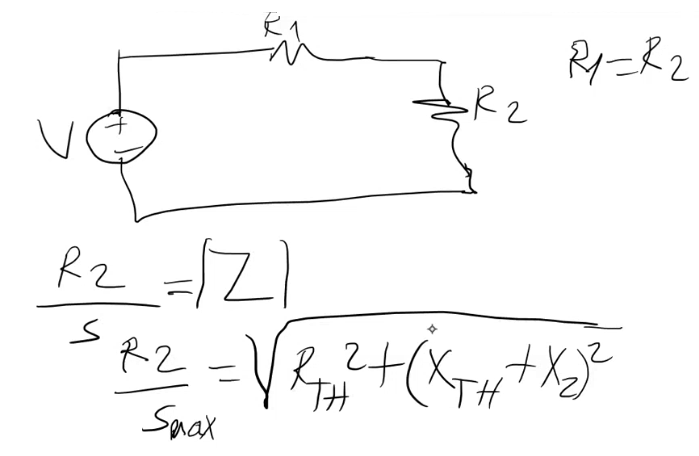 R1
R1=R2
R2
V
+
−
R2/s = |Z|
R2/smax = √(RTH² + (XTH + X2)²)